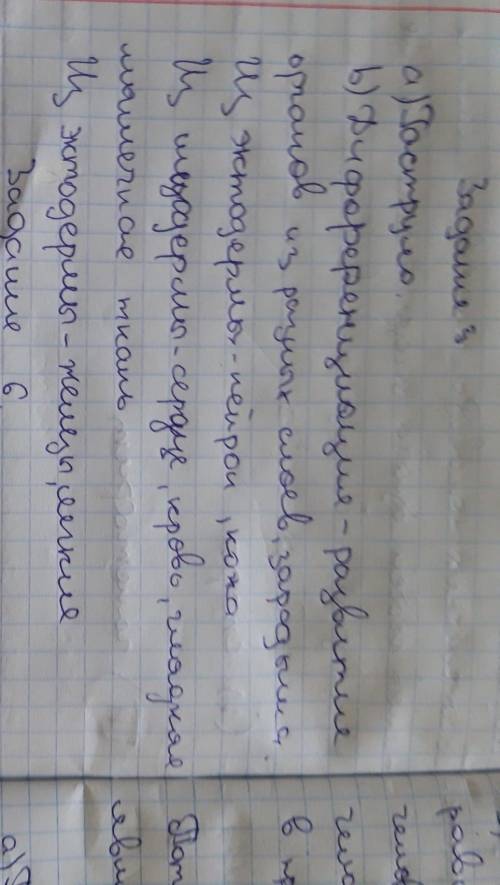 Задание 3
а) Гаструло.
b) Дифференциация - развитие
органов из разных слоев, зародыша.
Из эктодермы - нейрон, кожа
Из мезодермы - сердце, кровь, гладкая
мышечная ткань
Из эктодермы - железы, легкие
Задание 6
рав
чело
чело
в пр
Пот
явл
а)